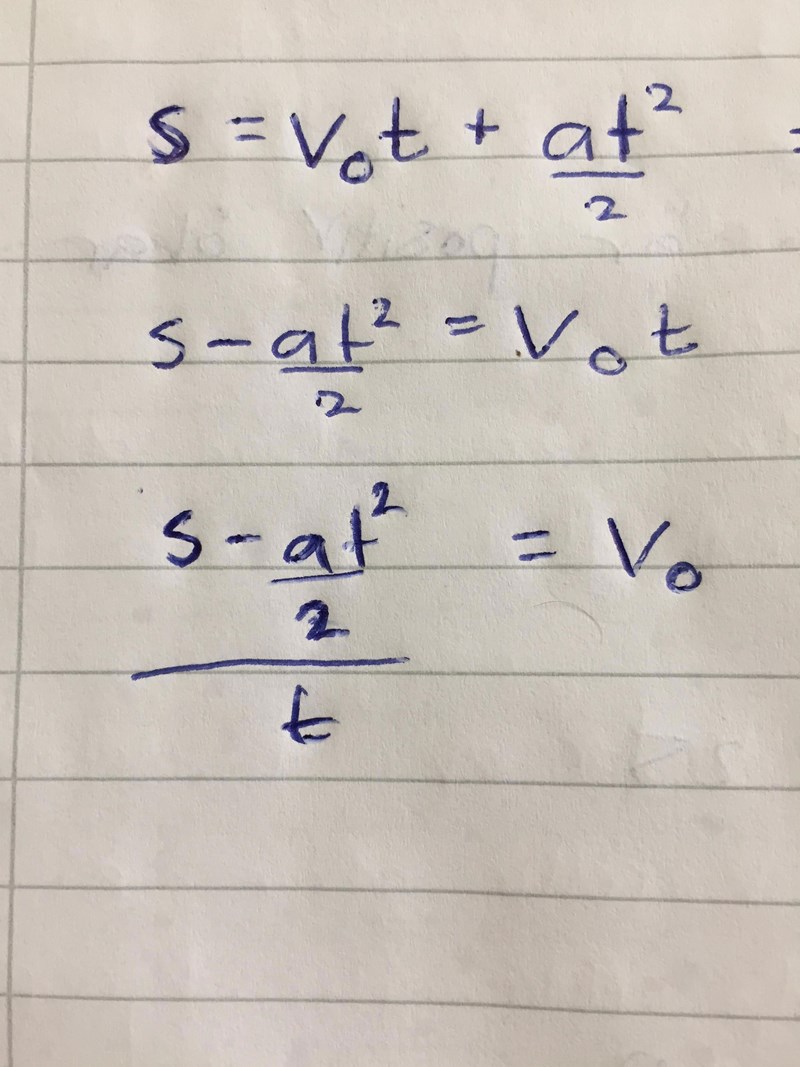 s = v₀t + at²/2 =
s - at²/2 = v₀t
(s - at²/2)/t = v₀